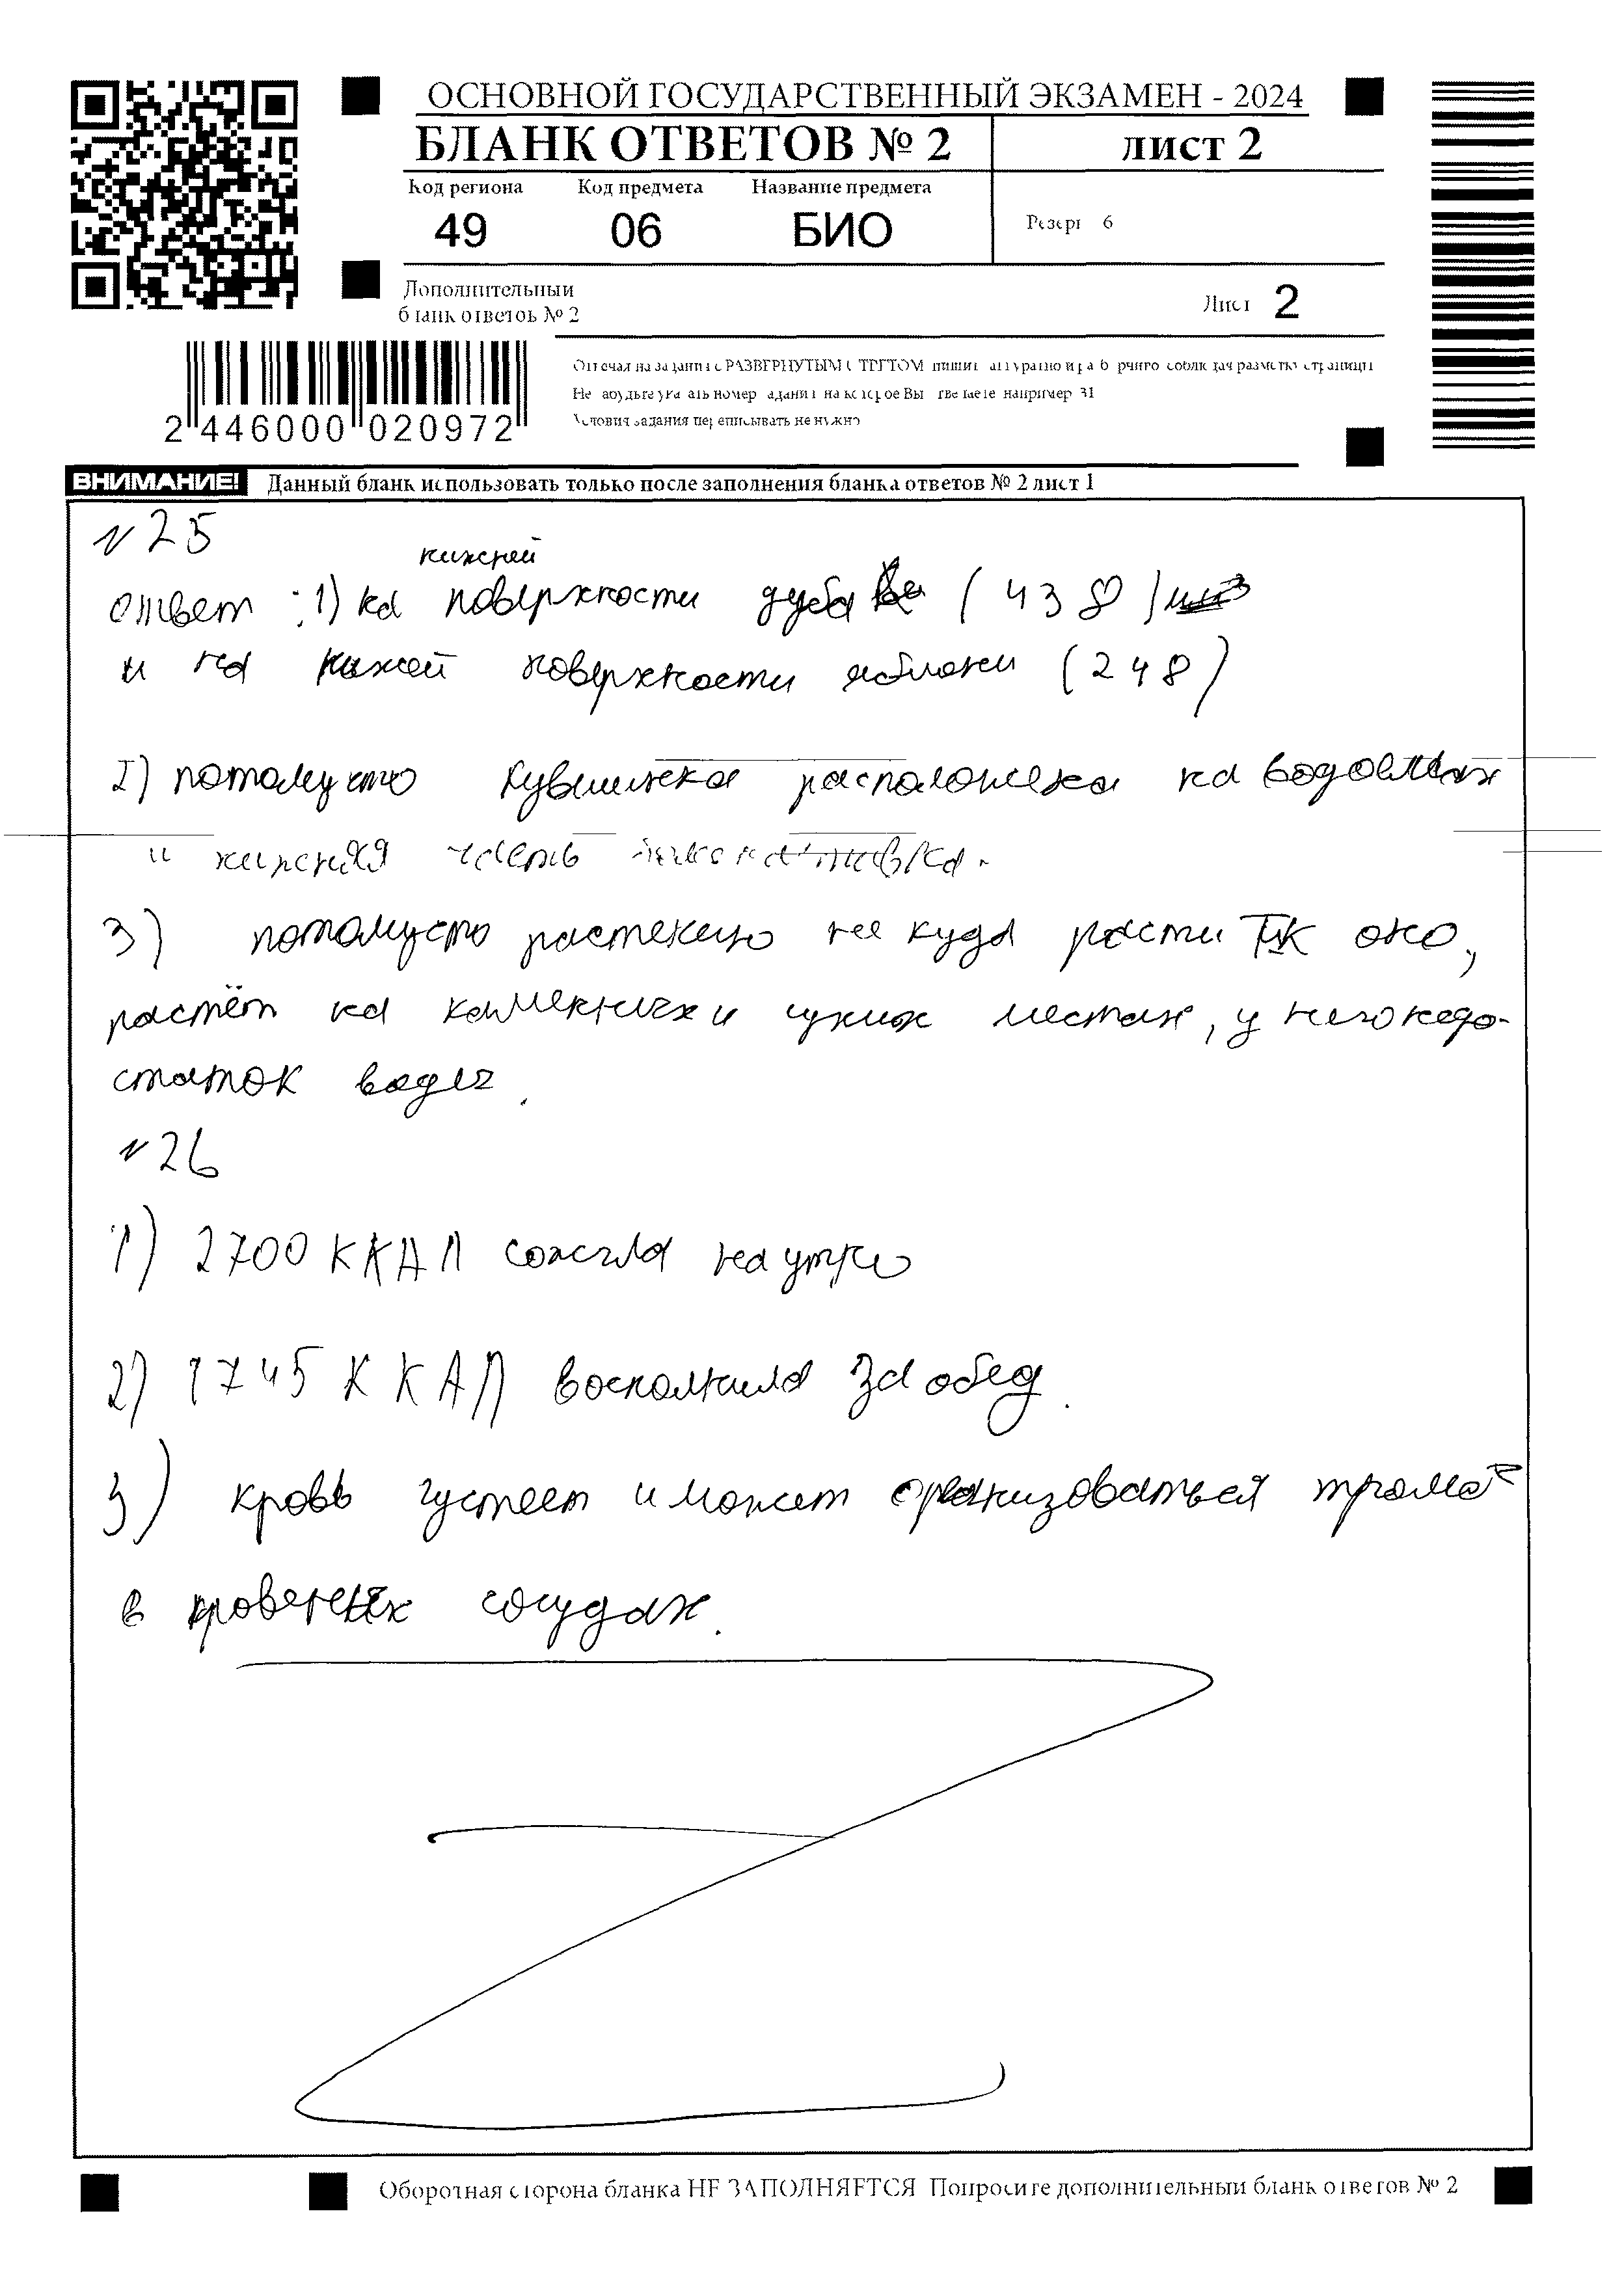 ОСНОВНОЙ ГОСУДАРСТВЕННЫЙ ЭКЗАМЕН - 2024
БЛАНК ОТВЕТОВ № 2
лист 2
Код региона
Код предмета
Название предмета
49
06
БИО
Резерв 6
Дополнительный
бланк ответов № 2
Лист 2
2 446000 020972
Отвечая на задания с РАЗВЕРНУТЫМ ОТВЕТОМ, пишите аккуратно и разборчиво, соблюдая разметку страницы
Не забудьте указать номер задания, на которое Вы отвечаете, например 31
Условия задания переписывать не нужно
ВНИМАНИЕ!
Данный бланк использовать только после заполнения бланка ответов № 2 лист 1
№ 25
нижней
ответ : 1) на поверхности дуба (438)
и на нижней поверхности яблони (248)
2) потомучто кувшинка расположена на водоемах
и нижняя часть
3) потомучто растению не куда расти тк оно,
растёт на каменных и сухих местах, у него недо-
статок воды.
№ 26
1) 2700 ККАЛ сожгла на утро
2) 1745 ККАЛ восполнила за обед.
3) кровь густеет и может организоваться тромб
в кровенех сосудах.
Оборотная сторона бланка НЕ ЗАПОЛНЯЕТСЯ Попросите дополнительный бланк ответов № 2